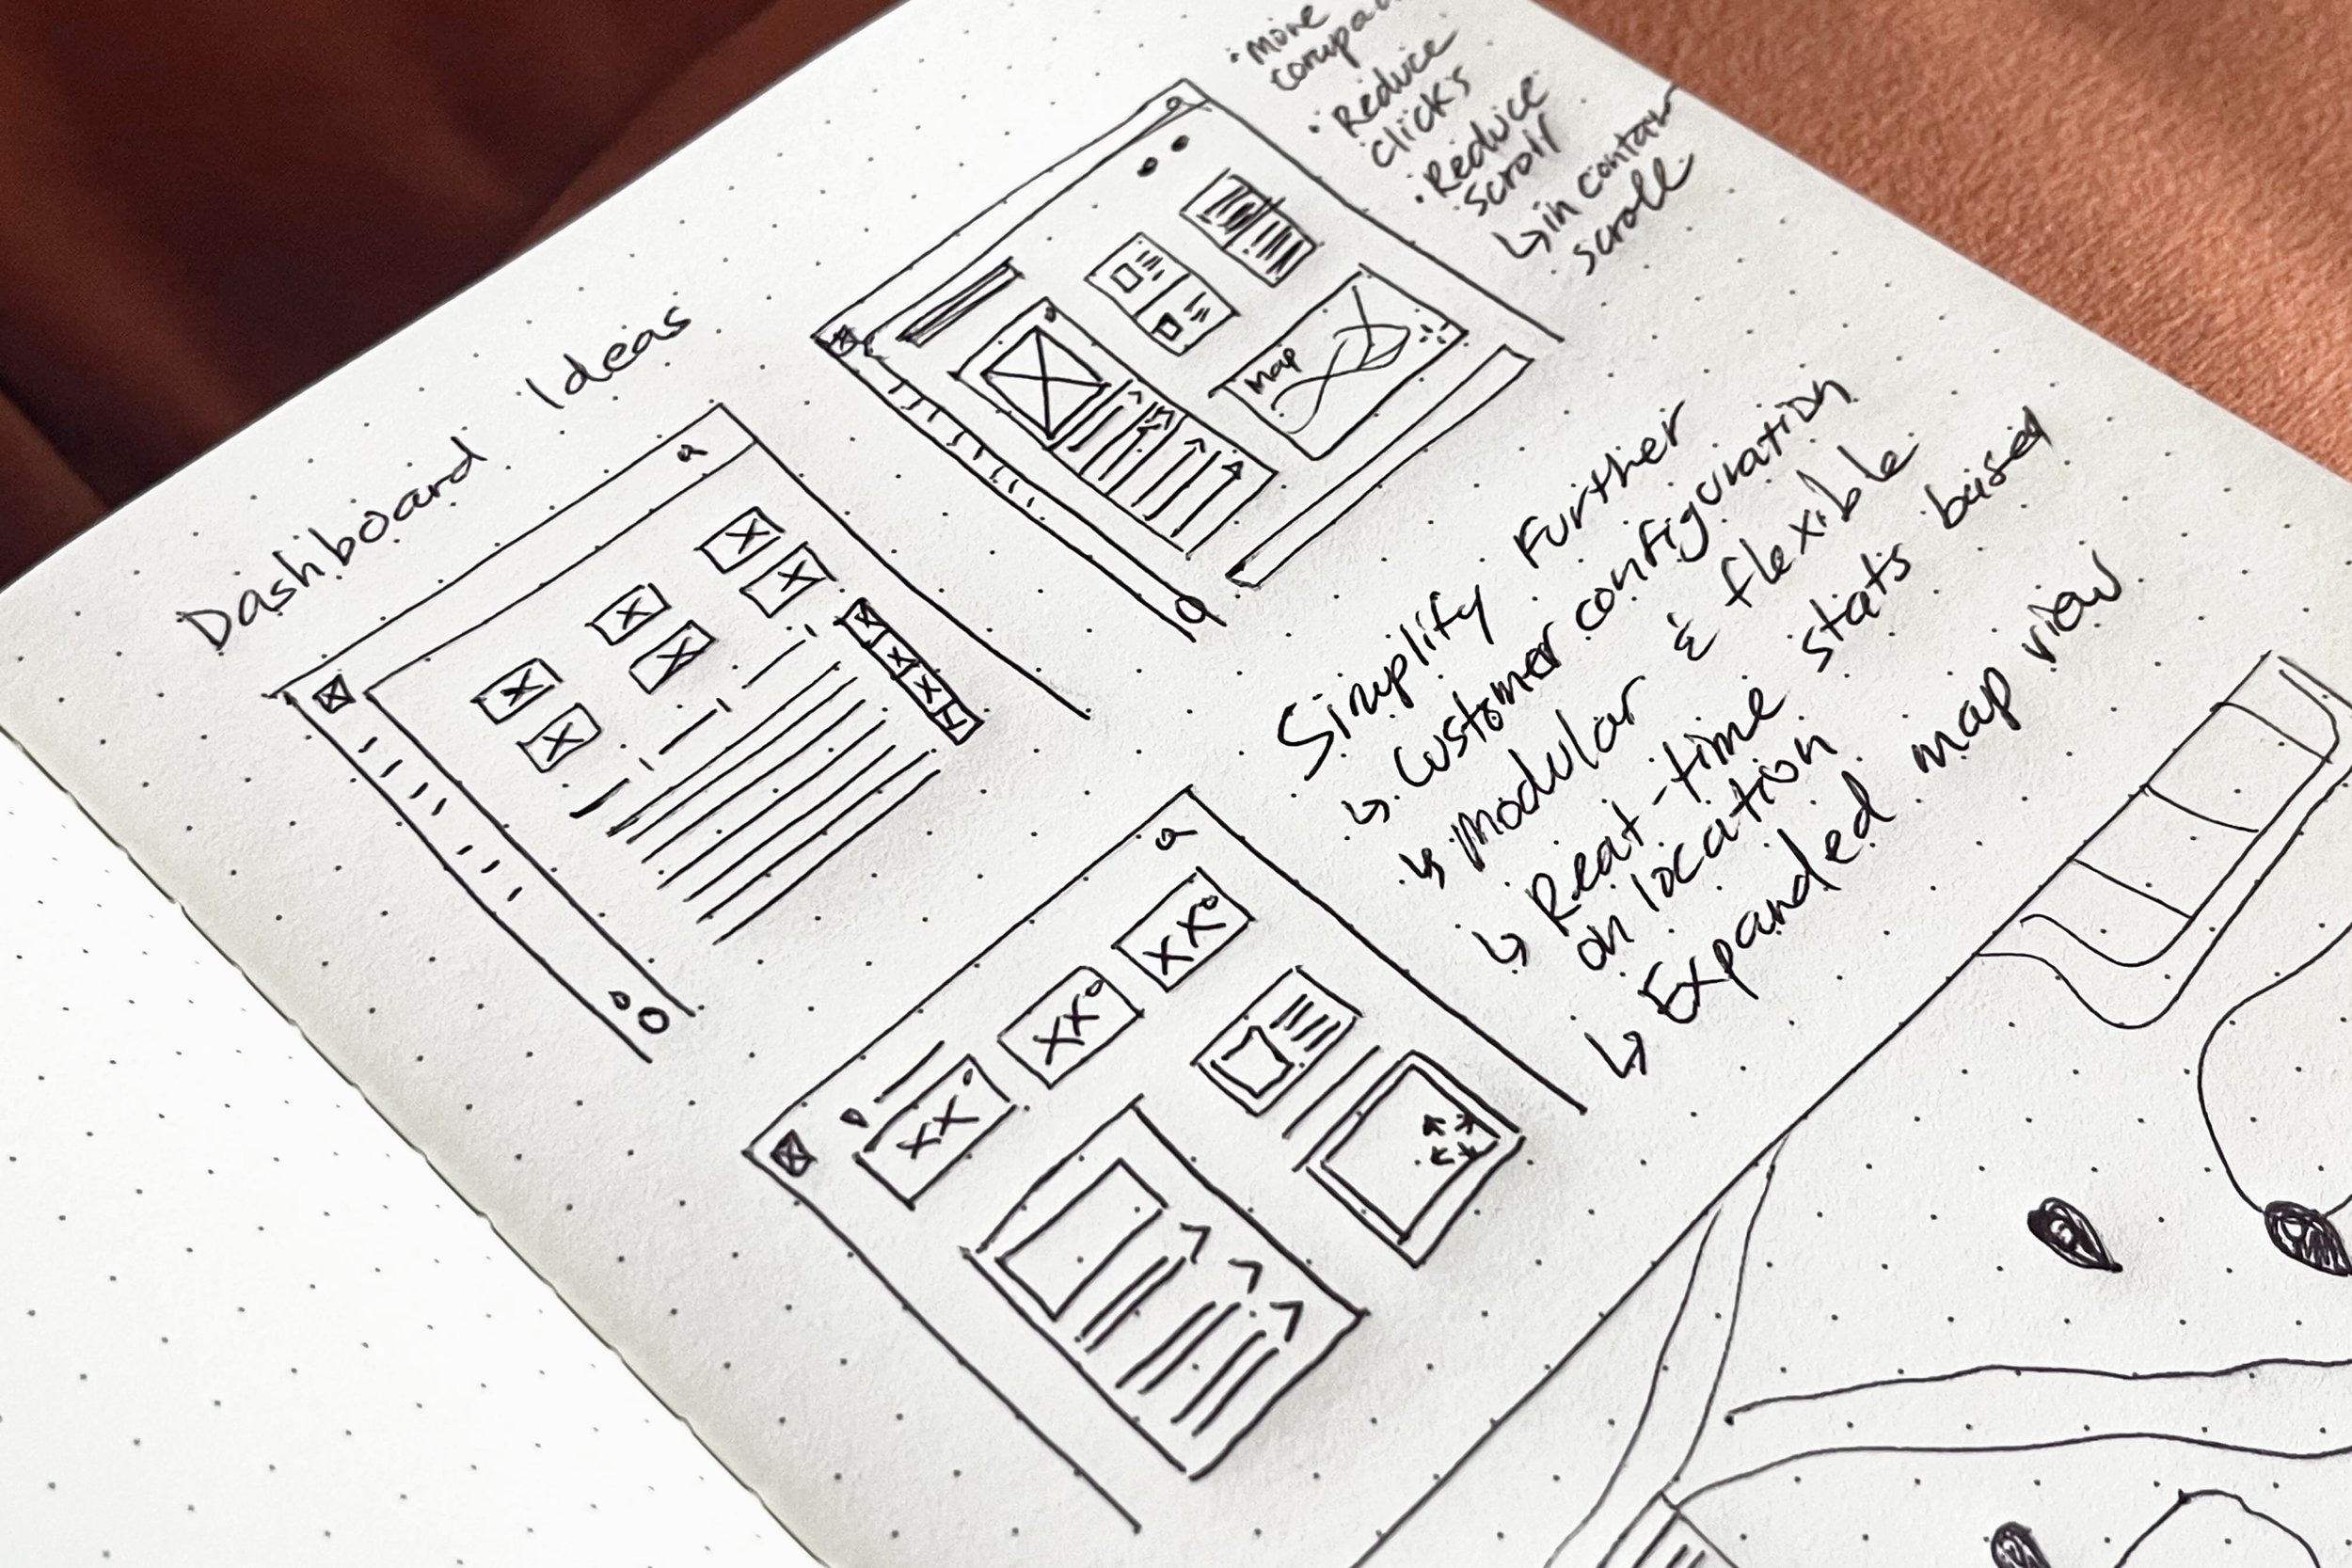 Dashboard Ideas
• More
• Reduce
clicks
• Reduce
scroll
↳ in
scroll
Map
Simplify Further
↳ Customer configuration
↳ Modular & flexible
↳ Real-time stats based
on location
↳ Expanded map view